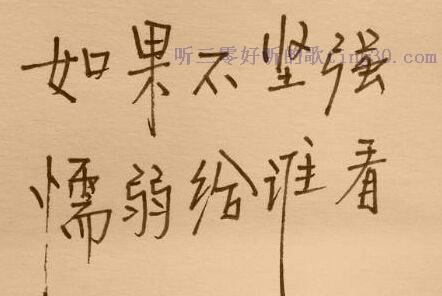 如果不坚强
听三零好听的歌ting30.com
懦弱给谁看